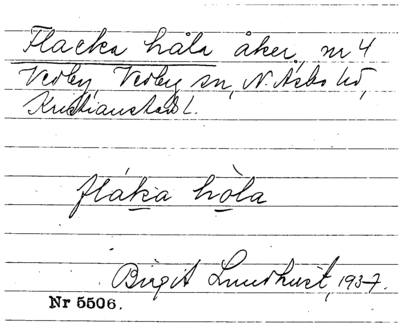 Flacka håla åker, nr 4
Vedby, Vedby sn, N. Åsbo hd,
Kristianstads l.
flắka hòla
Birgit Lundkvist, 1937.
Nr 5506.